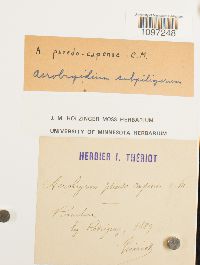 1097248
A. pseudo-capense C.M.
Aerobryidium subpiligerum
J. M. HOLZINGER MOSS HERBARIUM
UNIVERSITY OF MINNESOTA HERBARIUM
HERBIER I. THÉRIOT
Aerobryum pseudo capense C. M
leg. Rodriguez, 1889